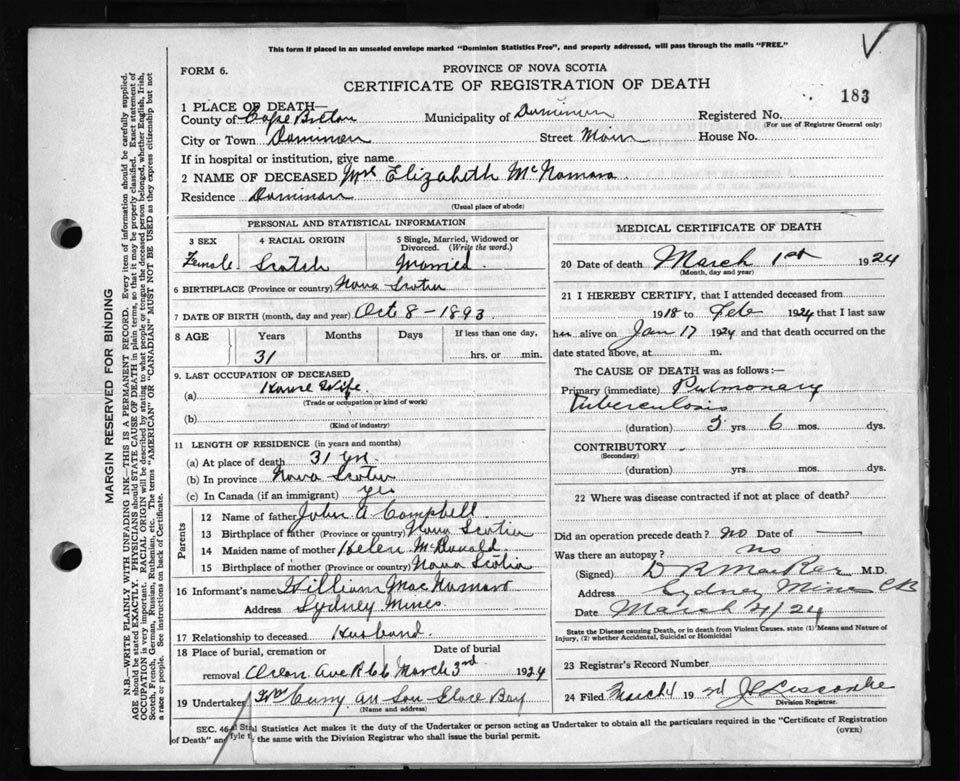 This form if placed in an unsealed envelope marked "Dominion Statistics Free", and properly addressed, will pass through the mails "FREE."
FORM 6.
PROVINCE OF NOVA SCOTIA
CERTIFICATE OF REGISTRATION OF DEATH
183
1 PLACE OF DEATH—
County of Cape Breton Municipality of Dominion Registered No.
(For use of Registrar General only)
City or Town Dominion Street Main House No.
If in hospital or institution, give name
2 NAME OF DECEASED Mrs Elizabeth McNamara
Residence Dominion
(Usual place of abode)
MARGIN RESERVED FOR BINDING
N.B.—WRITE PLAINLY WITH UNFADING INK—THIS IS A PERMANENT RECORD. Every item of information should be carefully supplied.
AGE should be stated EXACTLY. PHYSICIANS should STATE CAUSE OF DEATH in plain terms, so that it may be properly classified. Exact statement of
OCCUPATION is very important. RACIAL ORIGIN will be described by stating to what people or tongue the deceased person belonged, whether English, Irish,
Scotch, French, German, Russian, Ruthenian, etc. The terms "AMERICAN" or "CANADIAN" MUST NOT BE USED as they express citizenship but not
a race or people. See instructions on back of Certificate.
PERSONAL AND STATISTICAL INFORMATION
3 SEX 4 RACIAL ORIGIN 5 Single, Married, Widowed or
Divorced. (Write the word.)
Female Scotch Married
6 BIRTHPLACE (Province or country) Nova Scotia
7 DATE OF BIRTH (month, day and year) Oct 8 - 1893
8 AGE Years Months Days If less than one day,
31 hrs. or min.
9. LAST OCCUPATION OF DECEASED
(a) House Wife
(Trade or occupation or kind of work)
(b)
(Kind of industry)
11 LENGTH OF RESIDENCE (in years and months)
(a) At place of death 31 yr
(b) In province Nova Scotia
(c) In Canada (if an immigrant) yes
Parents
12 Name of father John A Campbell
13 Birthplace of father (Province or country) Nova Scotia
14 Maiden name of mother Helen McDonald
15 Birthplace of mother (Province or country) Nova Scotia
16 Informant's name William MacNamara
Address Sydney Mines
17 Relationship to deceased Husband.
18 Place of burial, cremation or Date of burial
removal Ocean Ave March 3rd 1924
19 Undertaker Curry Son Glace Bay
(Name and address)
MEDICAL CERTIFICATE OF DEATH
20 Date of death March 1st 1924
(Month, day and year)
21 I HEREBY CERTIFY, that I attended deceased from
1918 to Feb 1924 that I last saw
her alive on Jan 17 1924 and that death occurred on the
date stated above, at m.
The CAUSE OF DEATH was as follows:—
Primary (immediate) Pulmonary
Tuberculosis
(duration) 5 yrs 6 mos. dys.
CONTRIBUTORY
(Secondary)
(duration) yrs mos. dys.
22 Where was disease contracted if not at place of death?
Did an operation precede death? no Date of —
Was there an autopsy? no
(Signed) D R MacRae M.D.
Address Sydney Mines CB
Date March 4/24
State the Disease causing Death, or in death from Violent Causes. state (1) Means and Nature of
Injury, (2) whether Accidental, Suicidal or Homicidal
23 Registrar's Record Number
24 Filed March 4 1924 Liscombe
Division Registrar.
SEC. 46 Statistics Act makes it the duty of the Undertaker or person acting as Undertaker to obtain all the particulars required in the "Certificate of Registration
of Death" and the same with the Division Registrar who shall issue the burial permit.
(OVER)